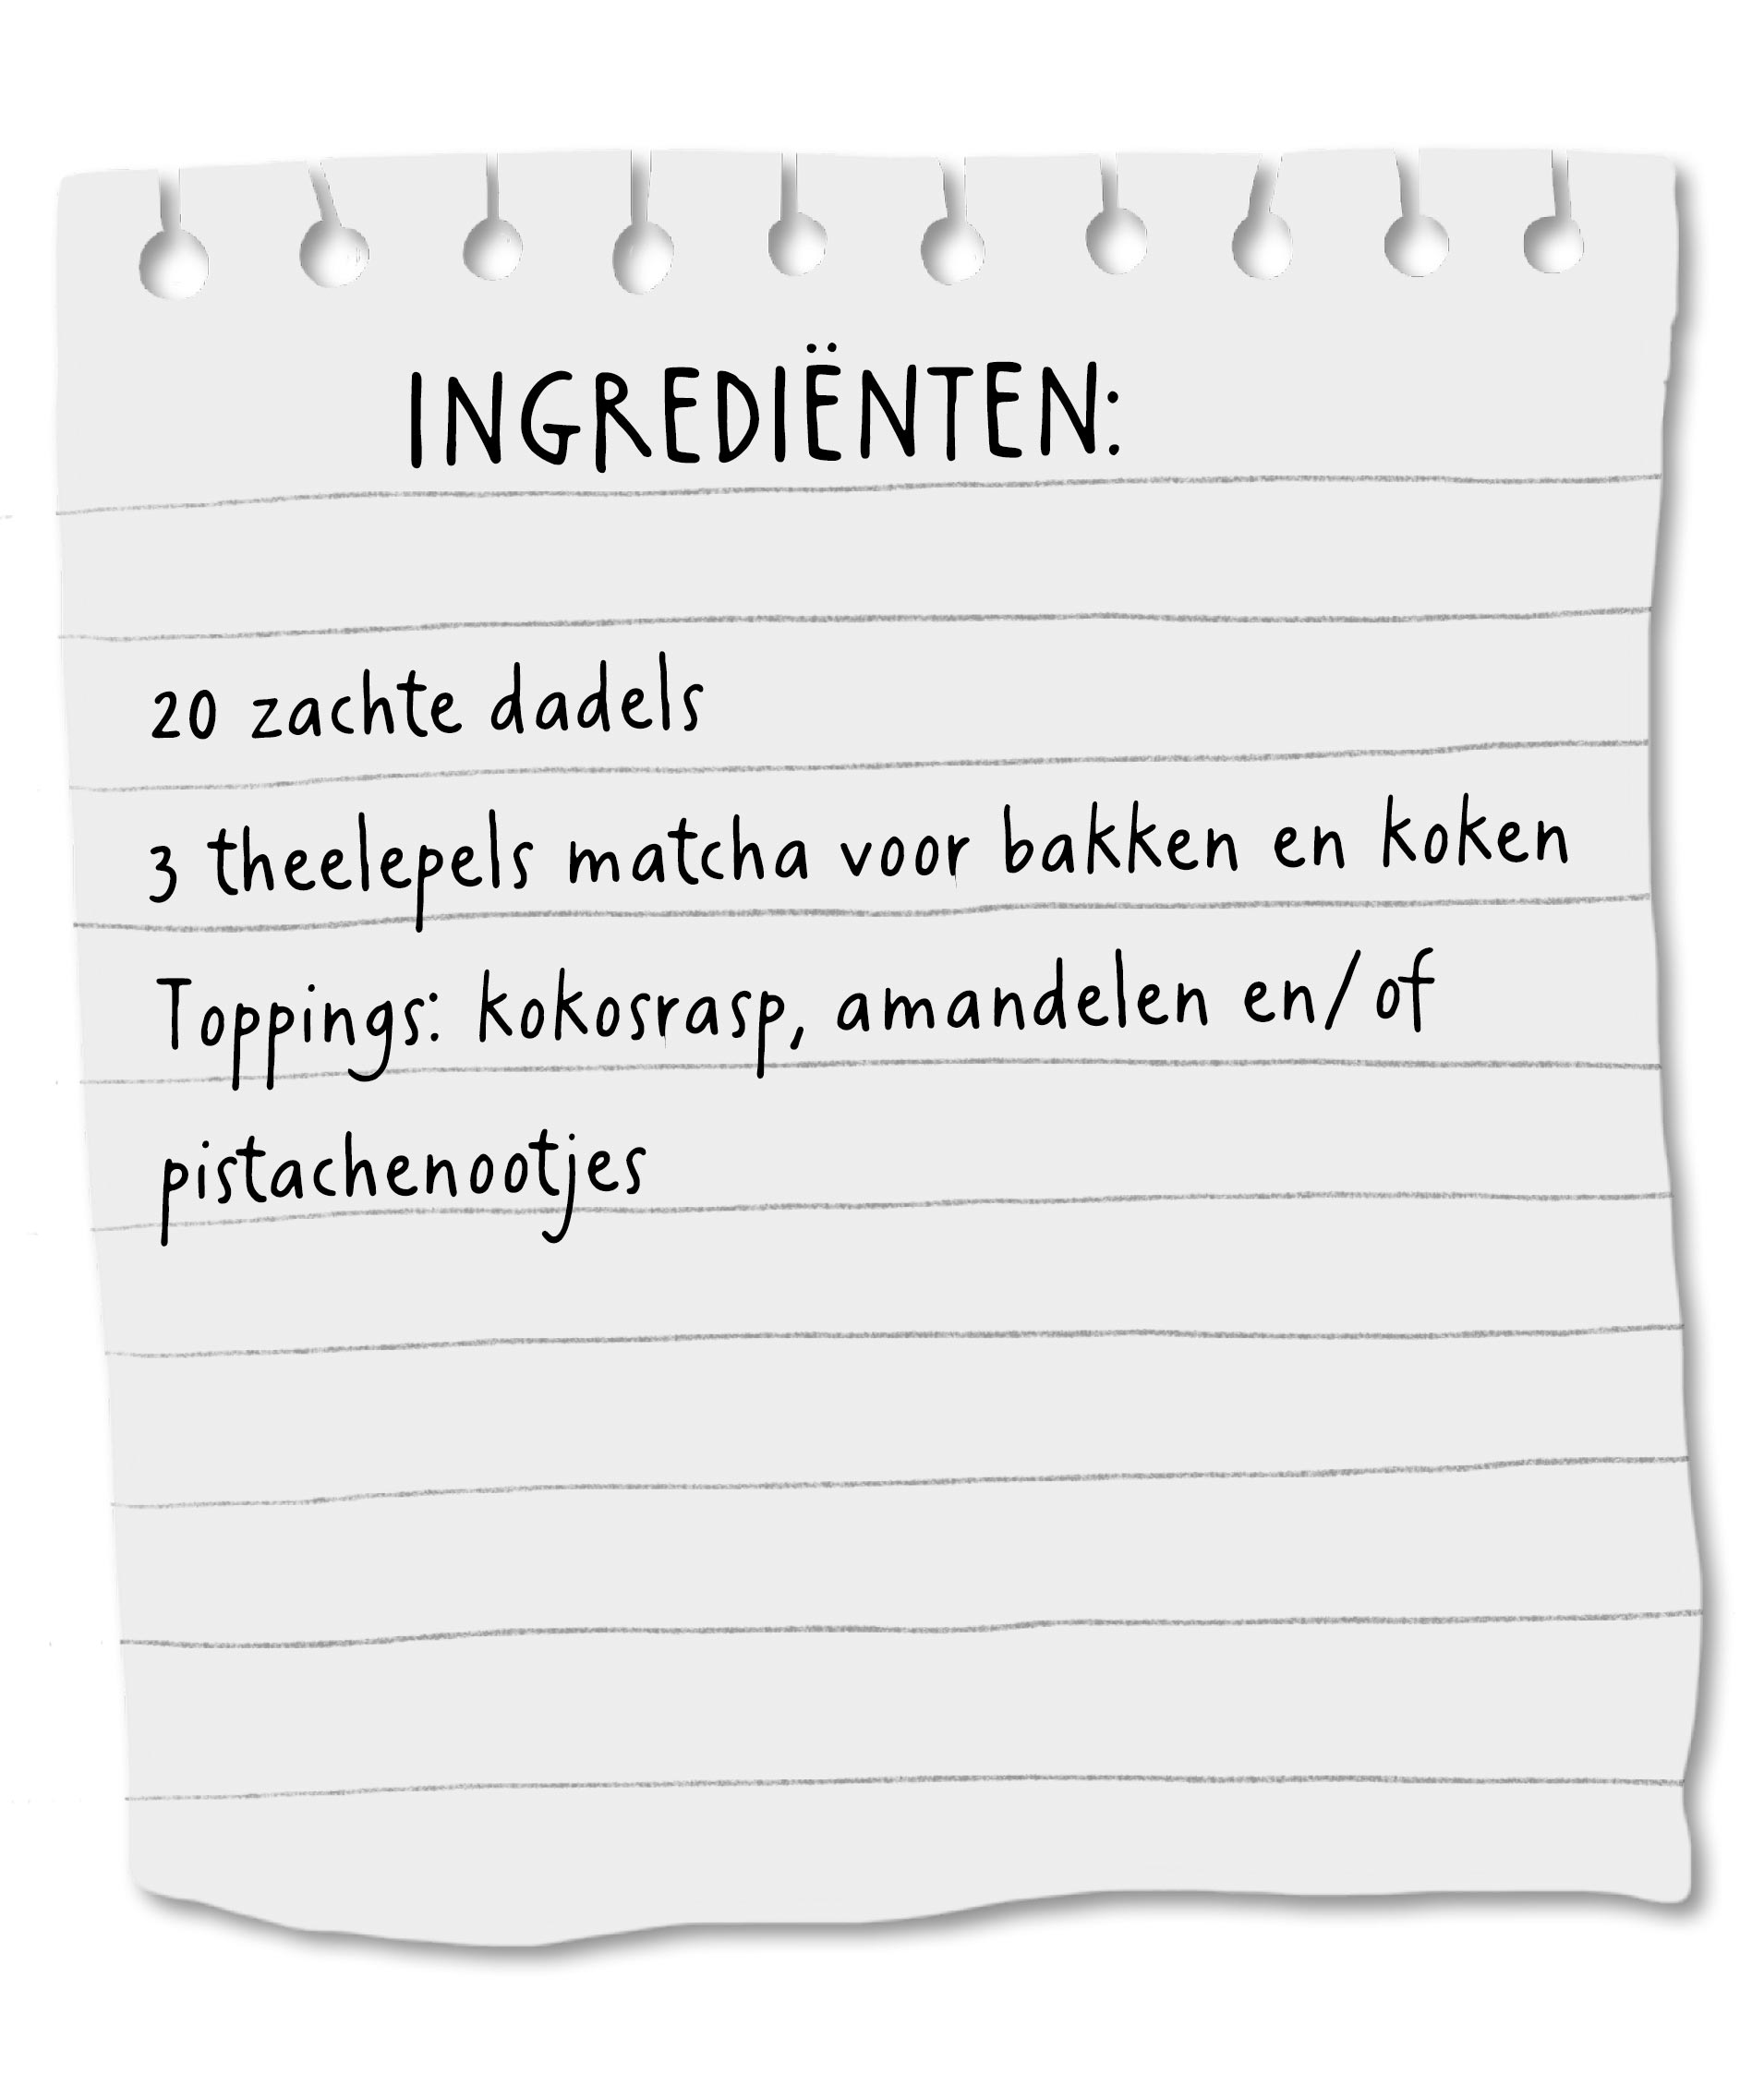 INGREDIËNTEN:
20 zachte dadels
3 theelepels matcha voor bakken en koken
Toppings: kokosrasp, amandelen en/of
pistachenootjes